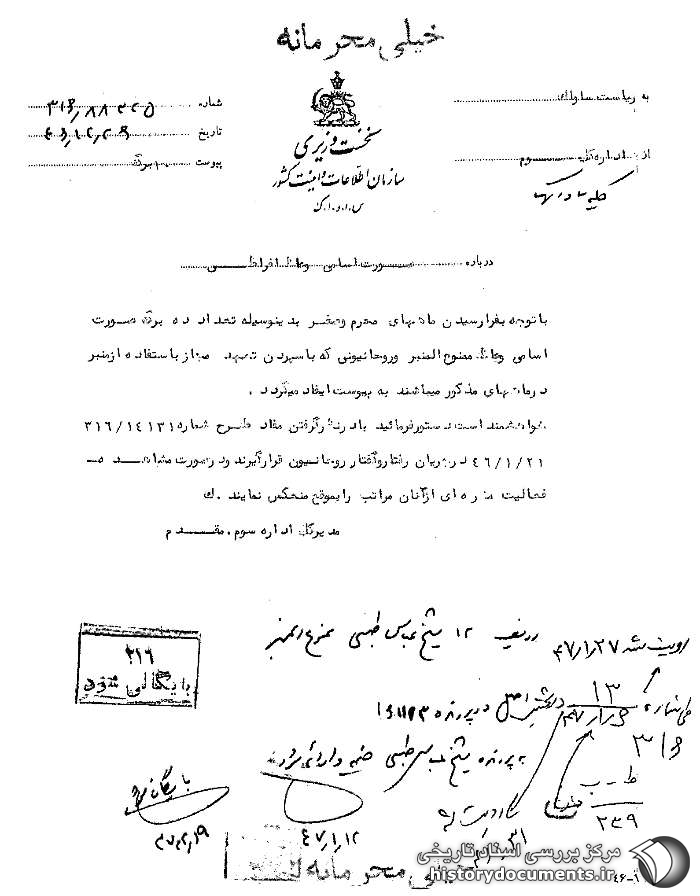 خیلی محرمانه
به ریاست ساواک
از اداره کل سوم
کلیه ساواک
نخست وزیری
سازمان اطلاعات و امنیت کشور
س.ا.و.ا.ک
شماره
تاریخ
پیوست ۱۰ برگ
درباره صورت اسامی وعاظ افراطی
با توجه بفرارسیدن ماههای محرم وصفر بدینوسیله تعداد ده برگ صورت
اسامی وعاظ ممنوع المنبر وروحانیونی که باسپردن تعهد مجاز باستفاده ازمنبر
درماههای مذکور میباشند به پیوست ایفاد میگردد .
خواهشمند است دستورفرمائید بادرنظرگرفتن مفاد طرح شماره ۳۱۶/۱۴۱۳۱
۴۶/۱/۲۱ درجریان رفتاروگفتار روحانیون قرارگیرند ودرصورت مشاهده
فعالیت مضره ای ازآنان مراتب رابموقع منعکس نمایند . ك
مدیرکل اداره سوم. مقدم
ردیف ۱۲ شیخ عباس طبسی ممنوع المنبر
رویت شد ۴۷/۱/۲۷
۳۱۶
بایگانی شود
۱۳
۳۱۶
در پرونده
به پرونده شیخ عباس طبسی ضمیمه و ارائه شود
بایگانی شود
ط-ب
۲۳۹
۴۷/۱/۱۲
خیلی محرمانه
مرکز بررسی اسناد تاریخی
www.historydocuments.ir